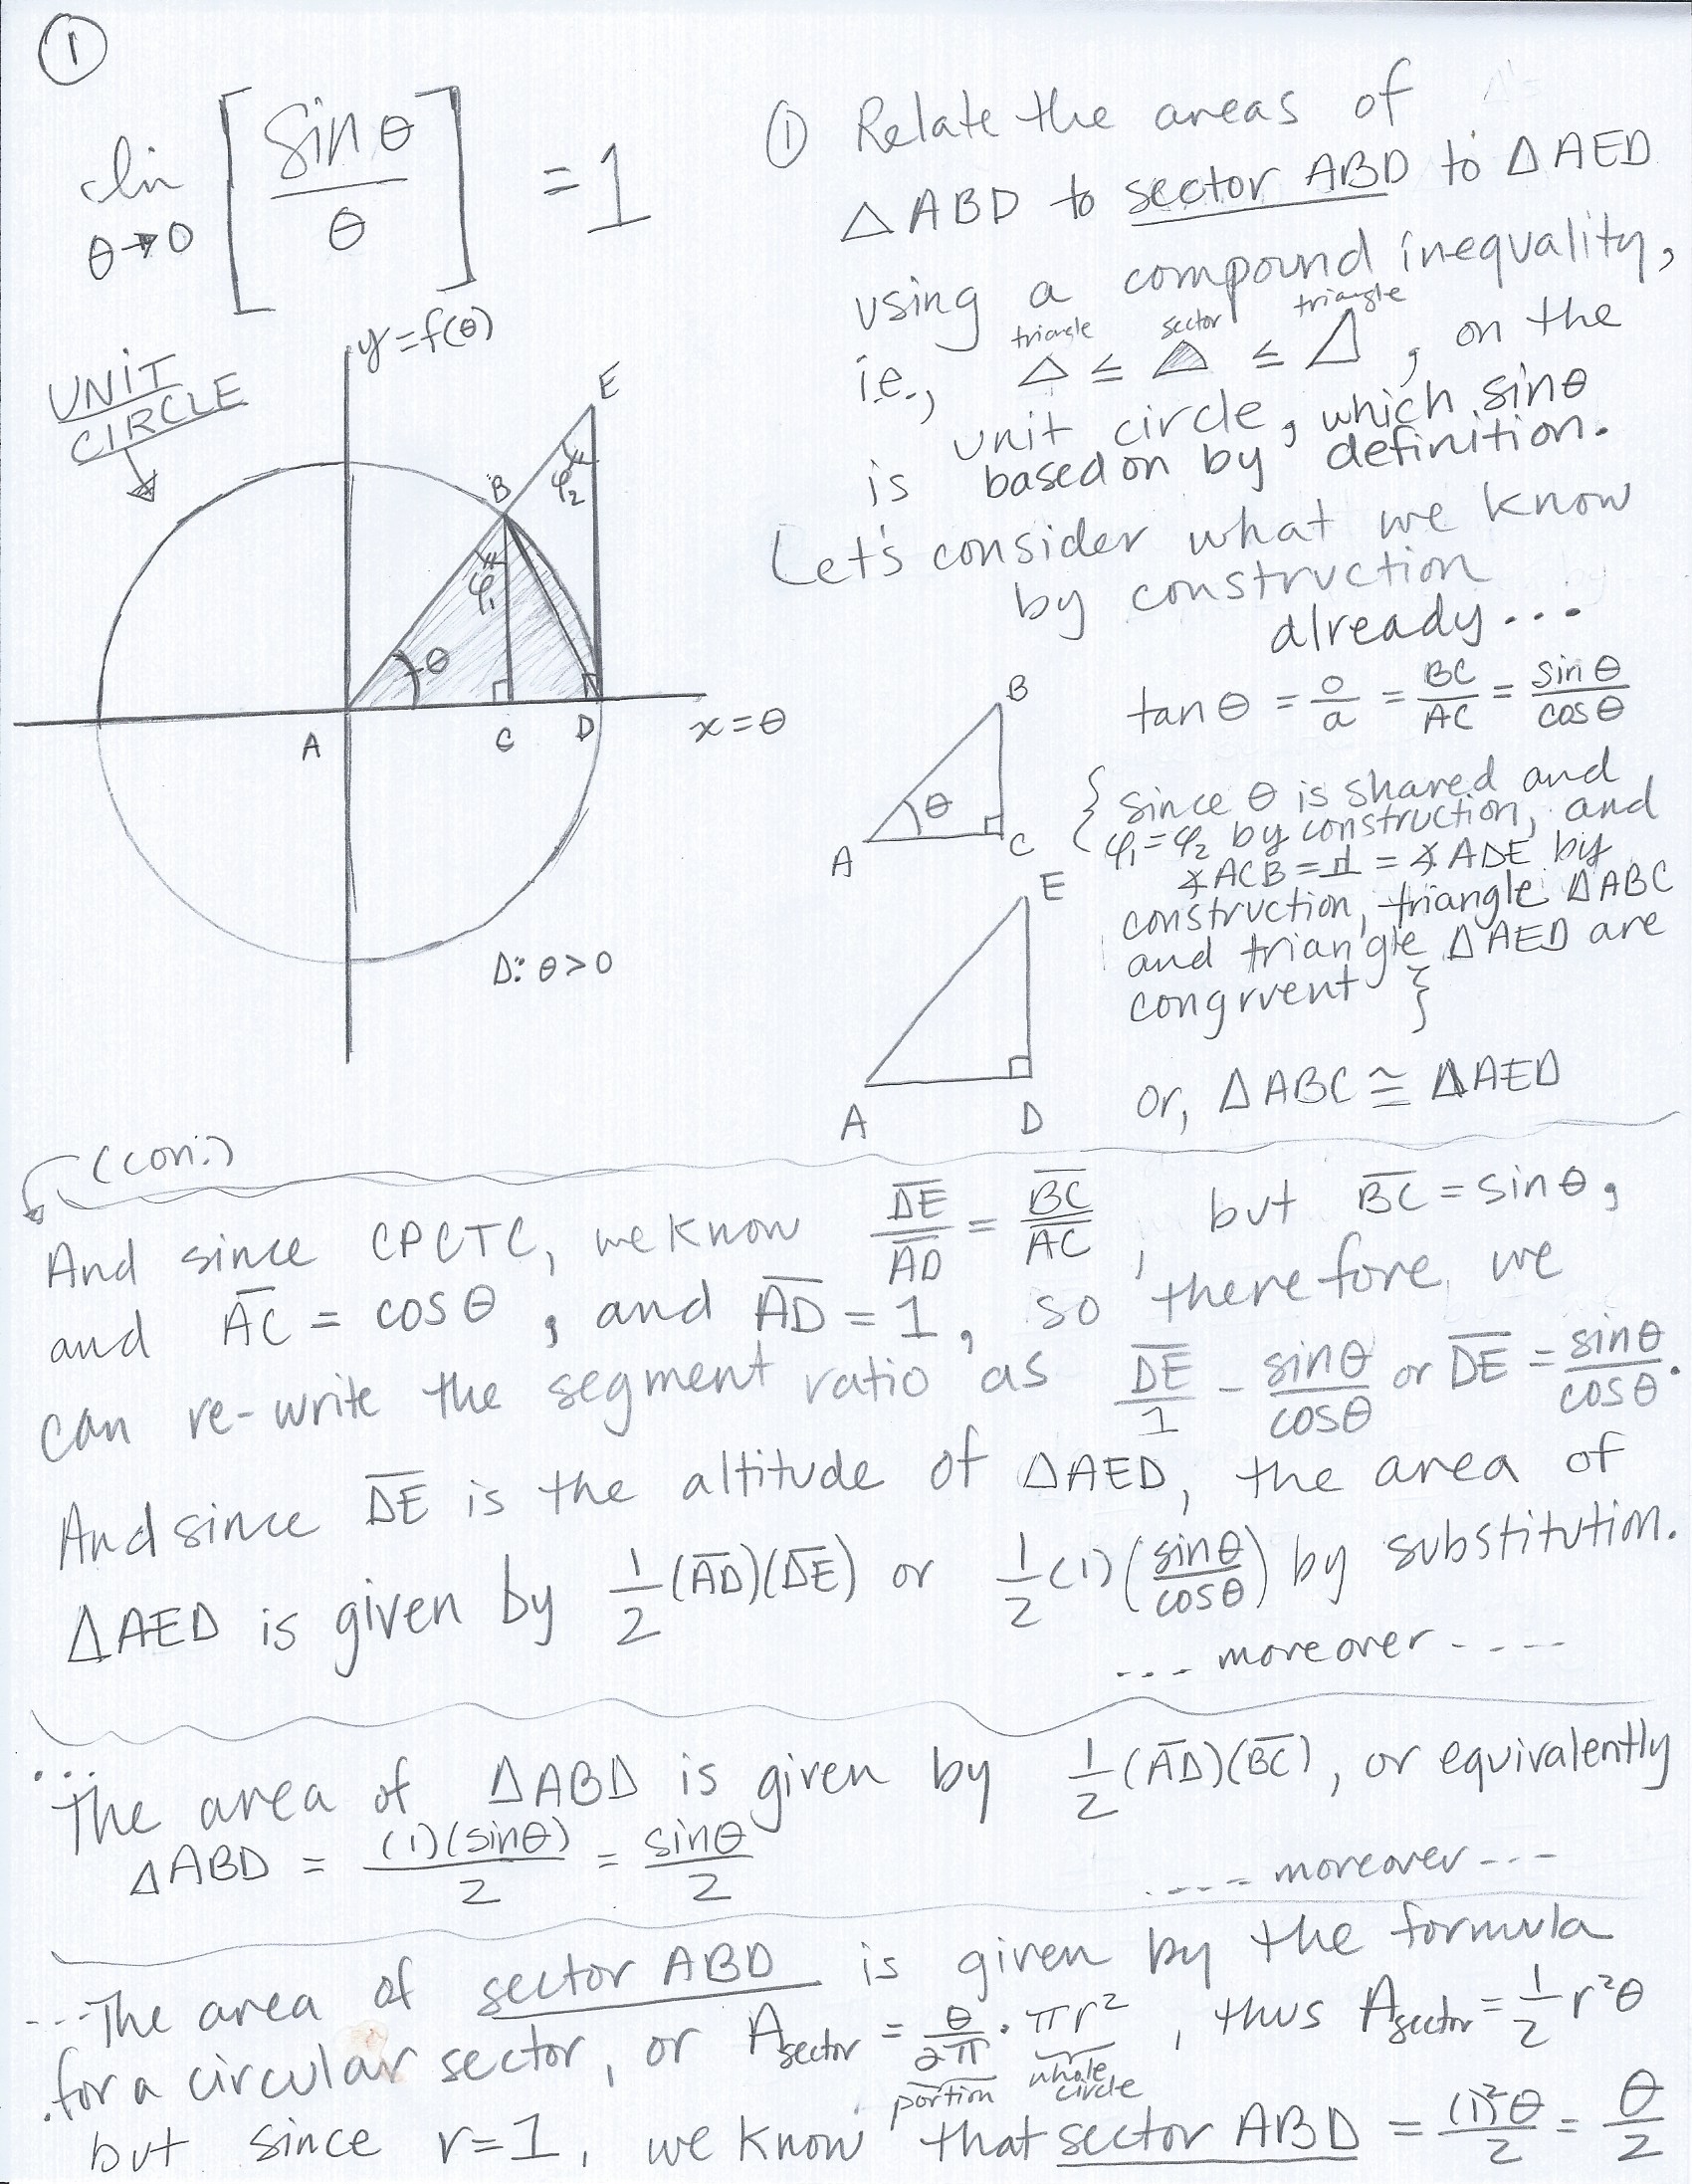 ①
lim θ→0 [sin θ / θ] = 1
y = f(θ)
UNIT
CIRCLE
E
B
φ₂
φ₁
θ
A
C
D
x = θ
D: θ > 0
① Relate the areas of
△ABD to sector ABD to △AED
using a compound inequality,
triangle sector triangle
i.e., △ ≤ △ ≤ △, on the
unit circle, which sin θ
is based on by definition.
Let's consider what we know
by construction
already...
tan θ = o/a = BC/AC = sin θ/cos θ
B
θ
A
C
{since θ is shared and
φ₁ = φ₂ by construction, and
∡ACB = ⊾ = ∡ADE by
construction, triangle △ABC
and triangle △AED are
congruent}
E
A
D
or, △ABC ≅ △AED
(con.)
And since CPCTC, we know D̅E̅/A̅D̅ = B̅C̅/A̅C̅, but B̅C̅ = sin θ,
and A̅C̅ = cos θ, and A̅D̅ = 1, so therefore we
can re-write the segment ratio as D̅E̅/1 = sin θ/cos θ or D̅E̅ = sin θ/cos θ.
And since D̅E̅ is the altitude of △AED, the area of
△AED is given by 1/2 (A̅D̅)(D̅E̅) or 1/2 (1)(sin θ/cos θ) by substitution.
... moreover ....
...The area of △ABD is given by 1/2 (A̅D̅)(B̅C̅), or equivalently
△ABD = (1)(sin θ)/2 = sin θ/2
.... moreover ...
...The area of sector ABD is given by the formula
for a circular sector, or A sector = θ/2π · πr², thus A sector = 1/2 r²θ
portion whole circle
but since r = 1, we know that sector ABD = (1)²θ/2 = θ/2